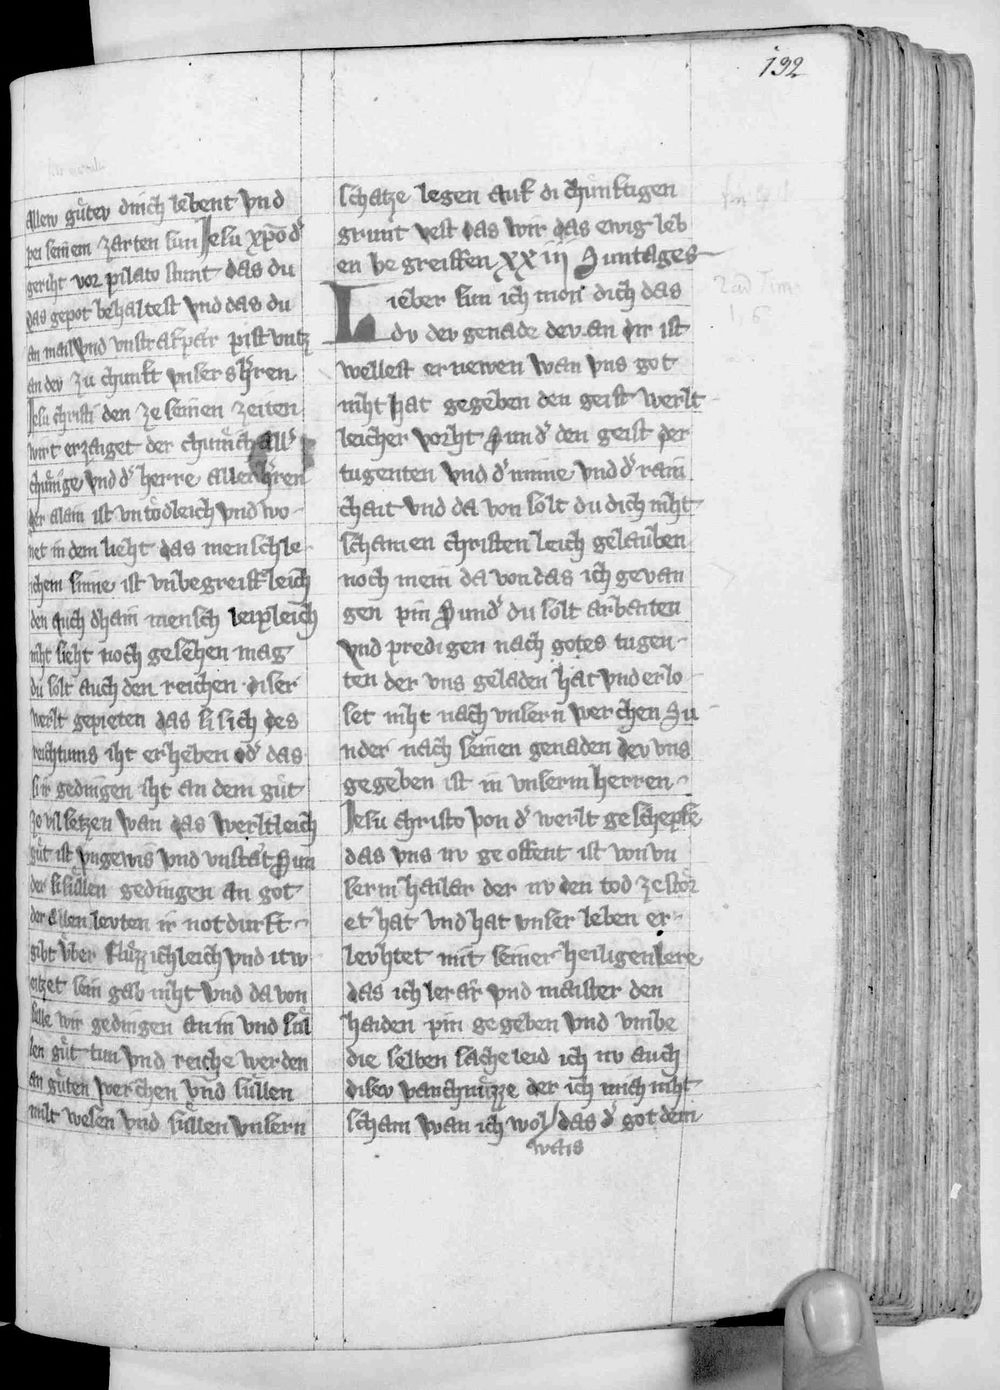 192
allew gůtev dinch lebent vnd
pei seinem zarten sun Jesu xp̄o dᷣ
geriht vor pilato stunt das du
das gepot behaltest vnd das du
an mail vnd vnstrafpar pist vntz
an dev zu chunft vnsers hᷣren
Jesu christi den ze seinen zeiten
wirt erzaiget der chunich allᷣ
chunige vnd dᷣ herre aller hᷣren
der alain ist vntodleich vnd wo
net in dem lieht das menschle
ichem sinne ist vnbegreiffleich
den auch dhain mensch leipleich
niht sieht noch gesehen mag
du solt auch den reichen diser
werlt gepieten das si sich des
reichtums iht erheben odᷣ das
si ir gedingen iht an dem gůt
ze vil setzen wan das werltleich
gůt ist vngewis vnd vnstät Sun
der si sullen gedingen an got
der allen levten ir notdurft
gibt vber fluzzichleich vnd itw
eitzet sein gab niht vnd da von
sulle wir gedingen an in vnd sul
len gůt tun vnd reiche werden
an gůten werchen vnd sullen
milt wesen vnd sullen vnsern
schatze legen auf di chunftigen
grunt vest das wir das ewig leb
en be greiffen xxiij Suntages
Lieber sun ich mon dich das
du dev genade dev an dir ist
wellest ernewen wan vns got
niht hat gegeben den geist werlt
leicher vorht Sundᷣ den geist der
tugenten vnd dᷣ minne vnd dᷣ rain
chait vnd da von solt du dich niht
schamen christenleich gelauben
noch mein da von das ich gevan
gen pin Sundᷣ du solt arbaiten
vnd predigen nach gotes tugen
ten der vns geladen hat vnd erlo
set niht nach vnsern werchen Su
nder nach seinen genaden dev vns
gegeben ist in vnserm herren
Jesu christo von dᷣ werlt geschepfe
das vns nv ge offent ist von vn
serm hailar der nv den tod zestor
et hat vnd hat vnser leben er
levhtet mit seiner heiligen lere
das ich lerar vnd maister den
haiden pin gegeben vnd vmbe
die selben sache leid ich nv auch
disev vanchnuzze der ich mich niht
scham wan ich wol das dᷣ got dem
wais